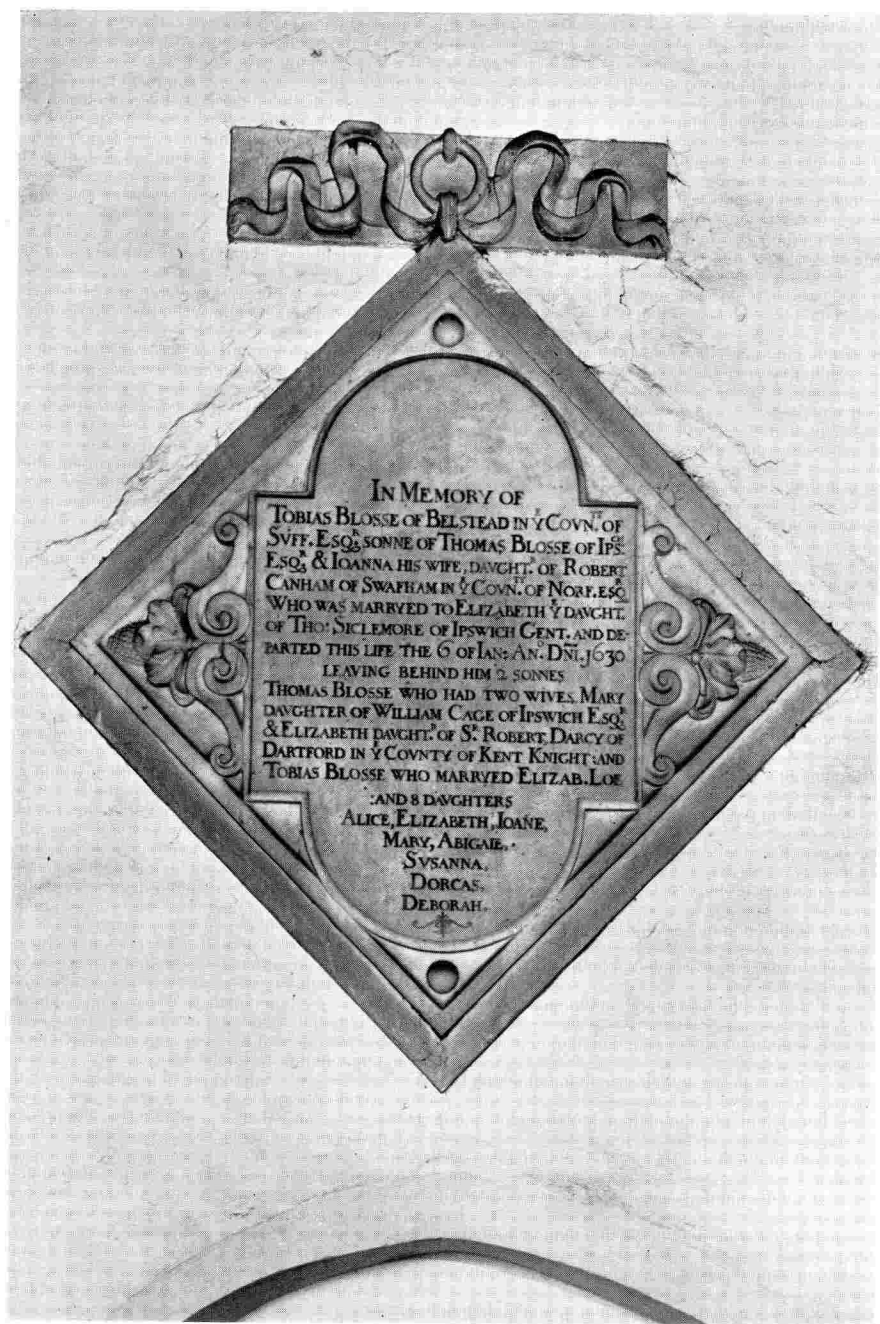 IN MEMORY OF
TOBIAS BLOSSE OF BELSTEAD IN Yᴱ COVN.ᵀᵞ OF
SVFF. ESQᴿ. SONNE OF THOMAS BLOSSE OF IPS:
ESQᴿ. & IOANNA HIS WIFE, DAVGHT.ᴿ OF ROBERT
CANHAM OF SWAFHAM IN Yᴱ COVN.ᵀᵞ OF NORF. ESQᴿ
WHO WAS MARRYED TO ELIZABETH Yᴱ DAVGHT.
OF THO: SICLEMORE OF IPSWICH GENT. AND DE-
PARTED THIS LIFE THE 6 OF IAN: AN.ᴼ DÑI. 1630
LEAVING BEHIND HIM 2 SONNES
THOMAS BLOSSE WHO HAD TWO WIVES, MARY
DAVGHTER OF WILLIAM CAGE OF IPSWICH ESQᴿ
& ELIZABETH DAVGHT.ᴿ OF Sᴿ. ROBERT DARCY OF
DARTFORD IN Yᴱ COVNTY OF KENT KNIGHT: AND
TOBIAS BLOSSE WHO MARRYED ELIZAB. LOE
:AND 8 DAVGHTERS
ALICE, ELIZABETH, IOAÑE,
MARY, ABIGAIL,
SVSANNA,
DORCAS,
DEBORAH.